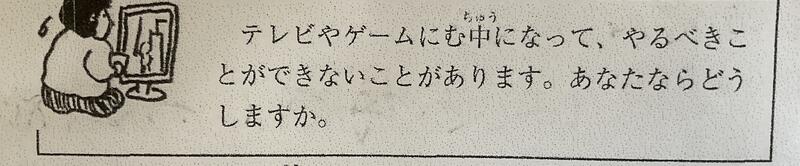 テレビやゲームにむ中になって、やるべきこ
とができないことがあります。あなたならどう
しますか。